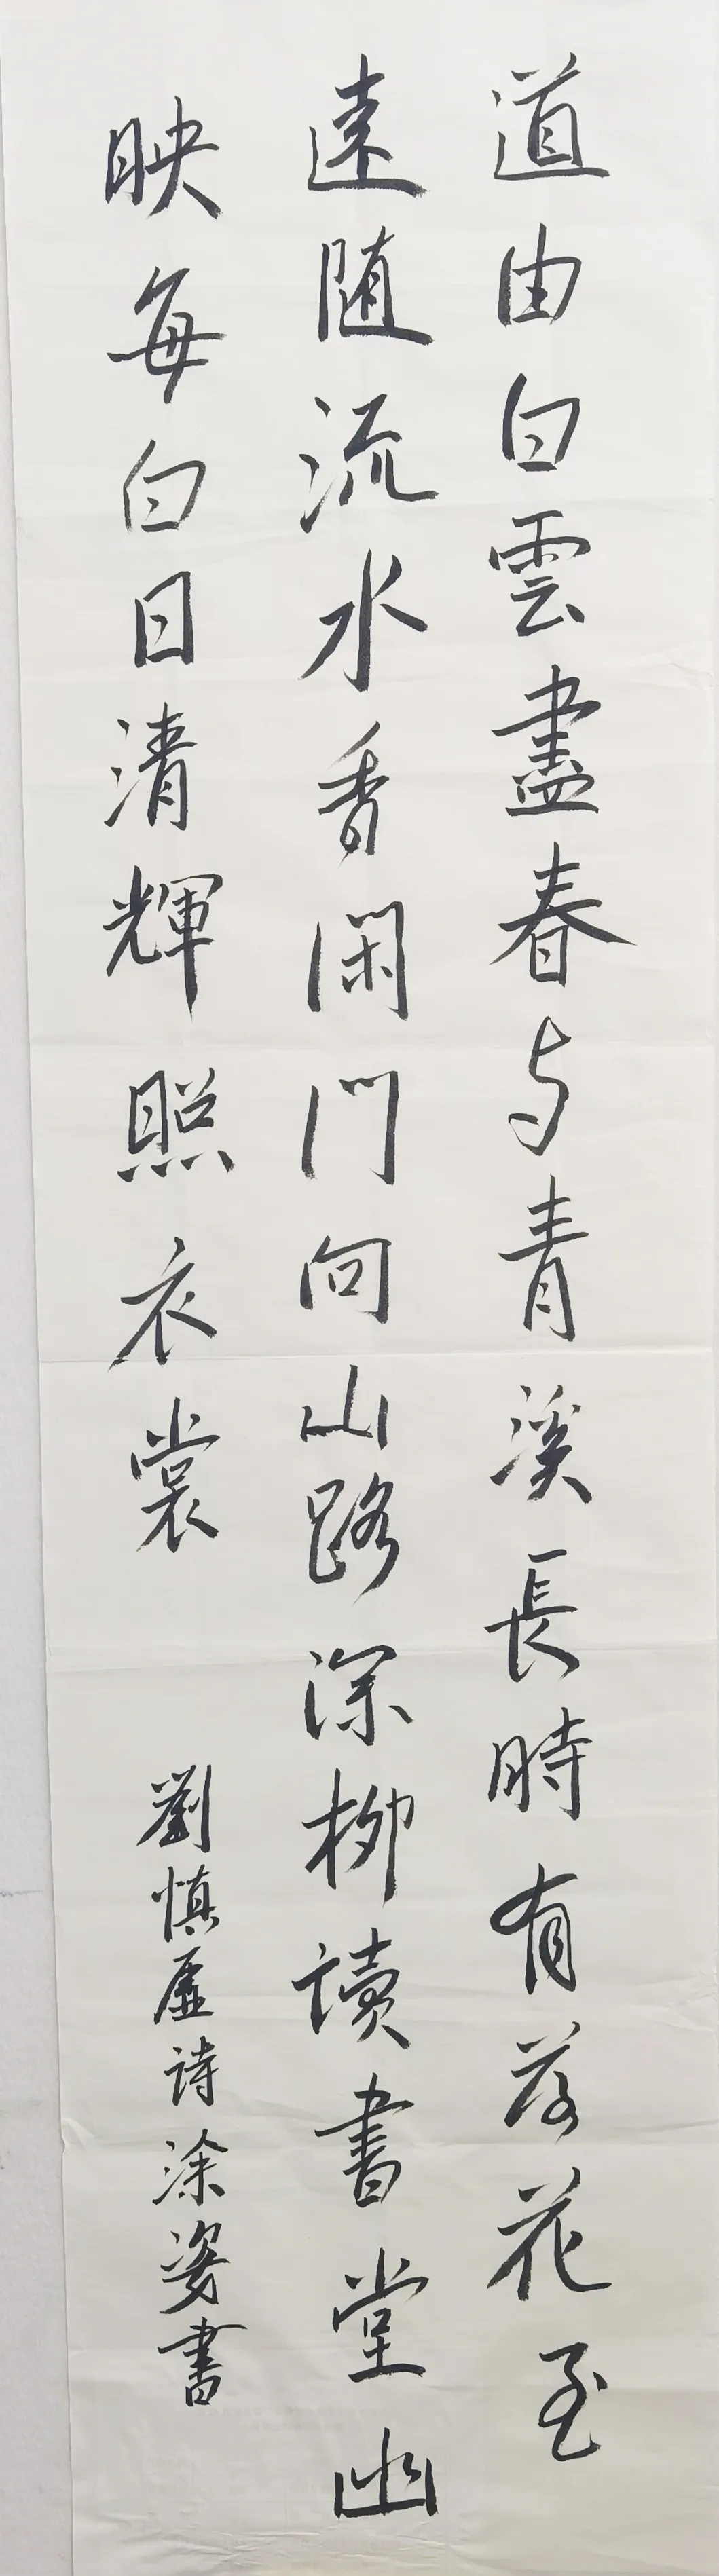 道由白雲盡春与青溪長時有落花至
遠随流水香閑門向山路深柳讀書堂幽
映每白日清輝照衣裳
劉慎虛诗涂姿書